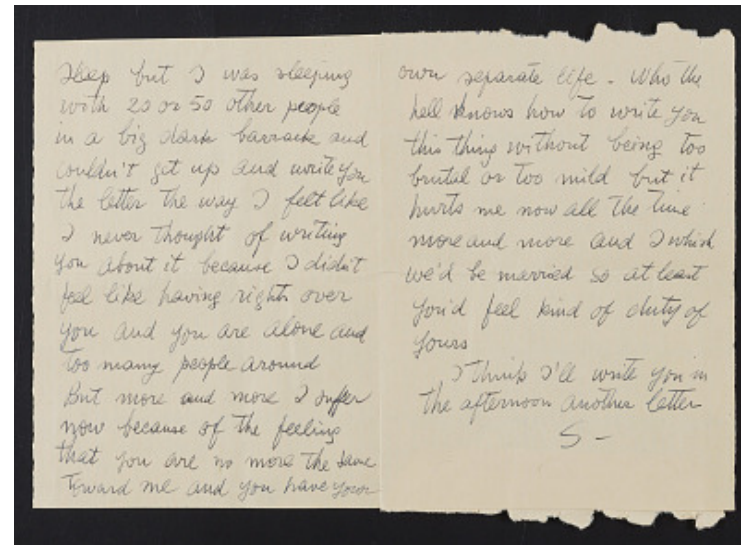 sleep but I was sleeping
with 20 or 50 other people
in a big dark barrack and
couldn't get up and write you
the letter the way I felt like
I never thought of writing
you about it because I didn't
feel like having rights over
you and you are alone and
too many people around
But more and more I suffer
now because of the feeling
that you are no more the same
toward me and you have your
own separate life - Who the
hell knows how to write you
this thing without being too
brutal or too mild but it
hurts me now all the time
more and more and I which
we'd be married so at least
you'd feel kind of duty of
yours
I think I'll write you in
the afternoon another letter
S -